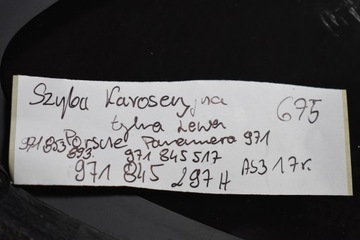 Szyba Karoseryjna 675
tylna Lewa
971 853 Porsche Panamera 971
893. 971 845 517
971 845 297 H AS3 17r.